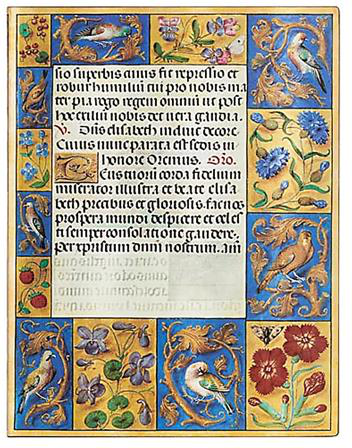 sio superbis cuius fit repressio et
robur humilium cui pro nobis ma
ter pia rogo regem omnium ut post
hoc exilium nobis det vera gaudia.
V. Dns elisabeth induit decore.
Cuius nunc parata est sedis in
honore Oremus. Oro.
Tuorum corda fidelium
miserator illustra et beate elisa
beth precibus gloriosis fac nos
prospera mundi despicere et celes
ti semper consolatione gaudere.
Per xpristum dnm nostrum. am